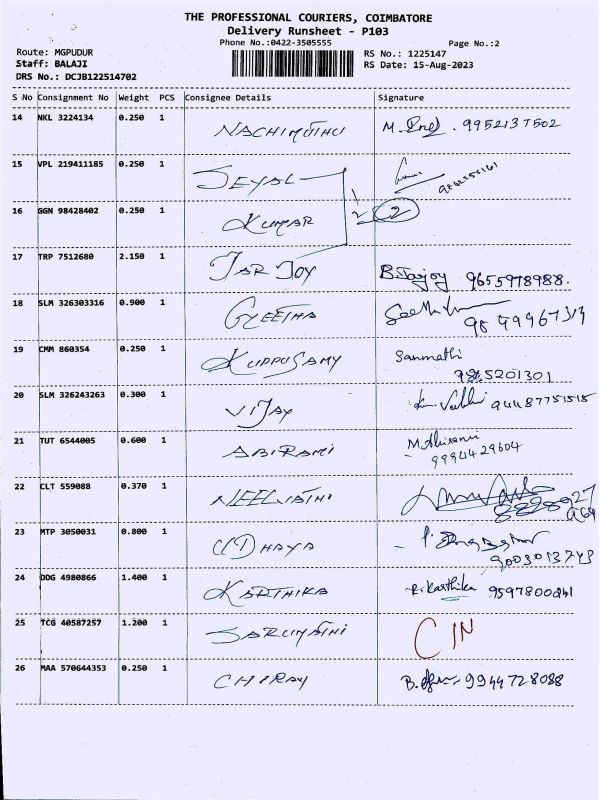 THE PROFESSIONAL COURIERS, COIMBATORE
Delivery Runsheet - P103
Phone No.:0422-3505555 Page No.:2
Route: MGPUDUR RS No.: 1225147
Staff: BALAJI RS Date: 15-Aug-2023
DRS No.: DCJB122514702
S No Consignment No Weight PCS Consignee Details Signature
14 NKL 3224134 0.250 1 NACHIMUTHU M. 9952137502
15 VPL 219411185 0.250 1 JEYAL
16 GGN 98428402 0.250 1 KUMAR 2
17 TRP 7512680 2.150 1 JAR JOY B. Jarjoy 9655978988.
18 SLM 326303316 0.900 1 GEETHA
19 CMM 860354 0.250 1 KUPPUSAMY Sanmathi
5201301
20 SLM 326243263 0.300 1 VIJAY
21 TUT 6544005 0.600 1 ABIRAMI
9994429604
22 CLT 559088 0.370 1
23 MTP 3050031 0.800 1 UDHAYA
9003013743
24 DDG 4980866 1.400 1 KARTHIKA R. Karthika 9597800841
25 TCG 40587257 1.200 1 C IN
26 MAA 570644353 0.250 1 CHIRAY B. 9944728088